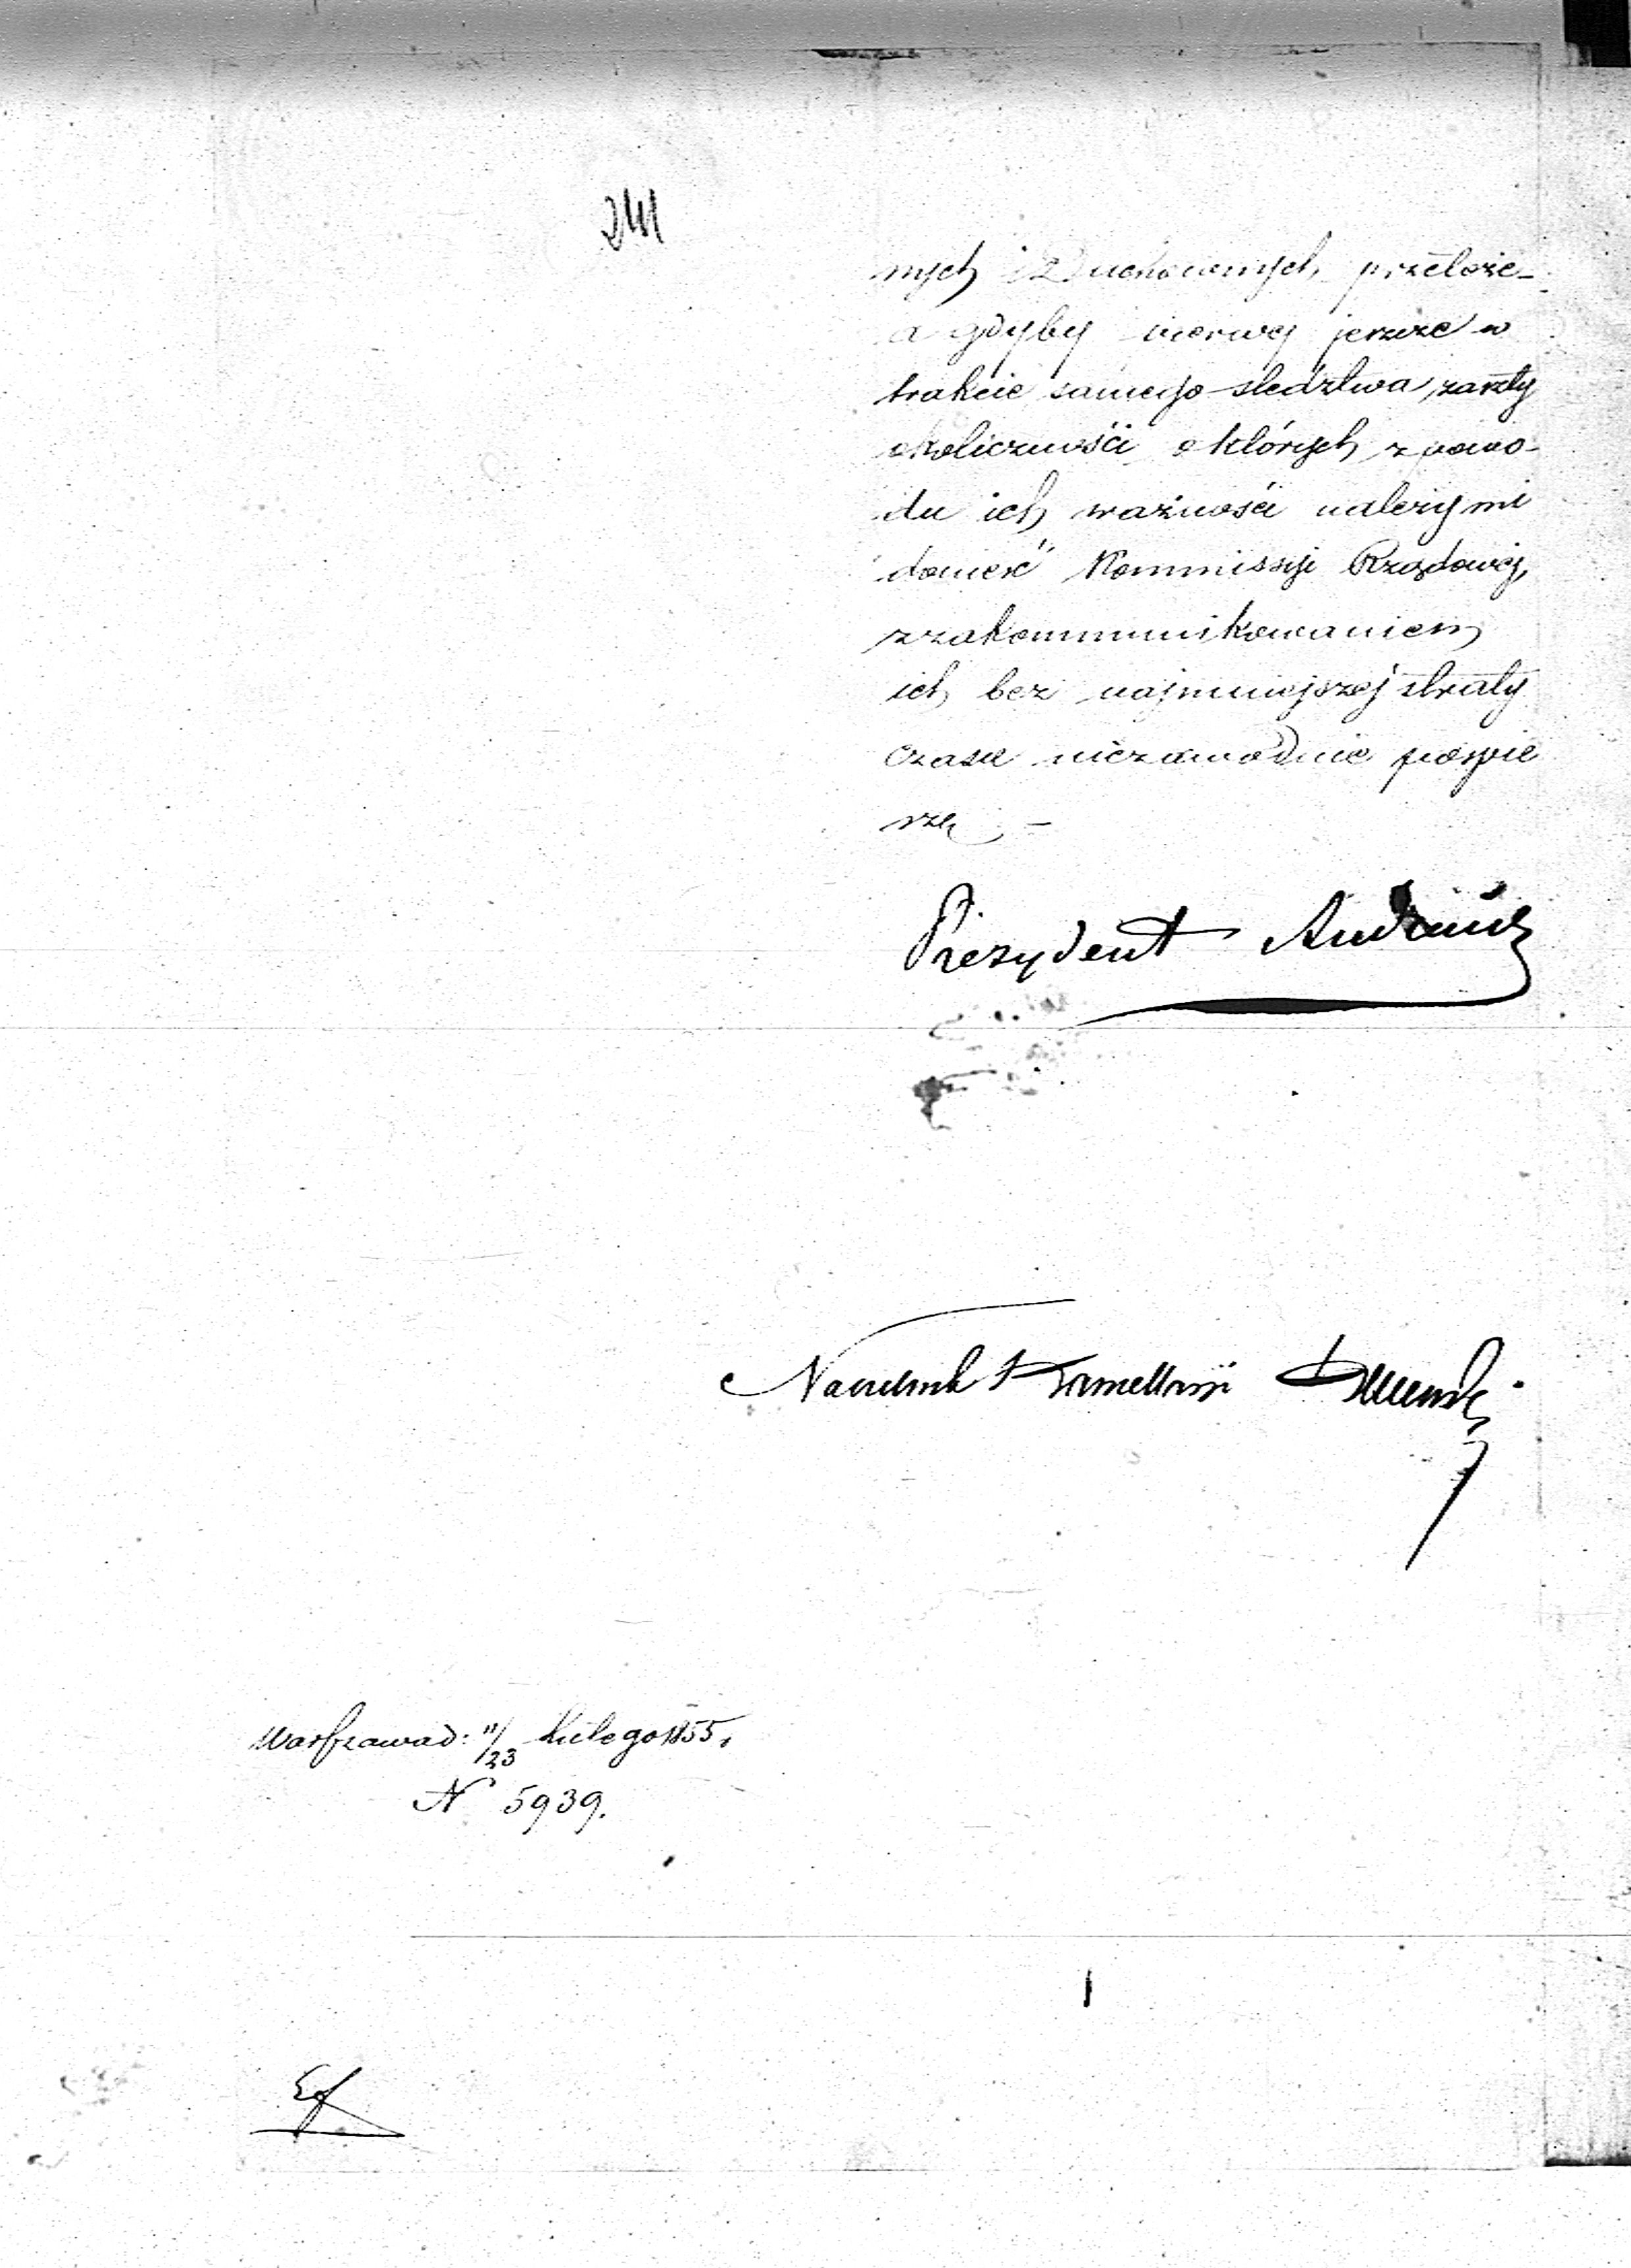 241
nych i Duchownych przełoże-
a gdyby pierwej jeszcze w
trakcie samego śledztwa zaszły
okoliczności o których z powo-
du ich ważności należy mi
donieść Kommissyi Rządowej,
z zakommunikowaniem
ich bez najmniejszej straty
czasu niezawodnie pospie
szę. —
Prezydent
Naczelnik Kancellaryi
Warszawa d: 11/23 Lutego 1855.
N 5939.